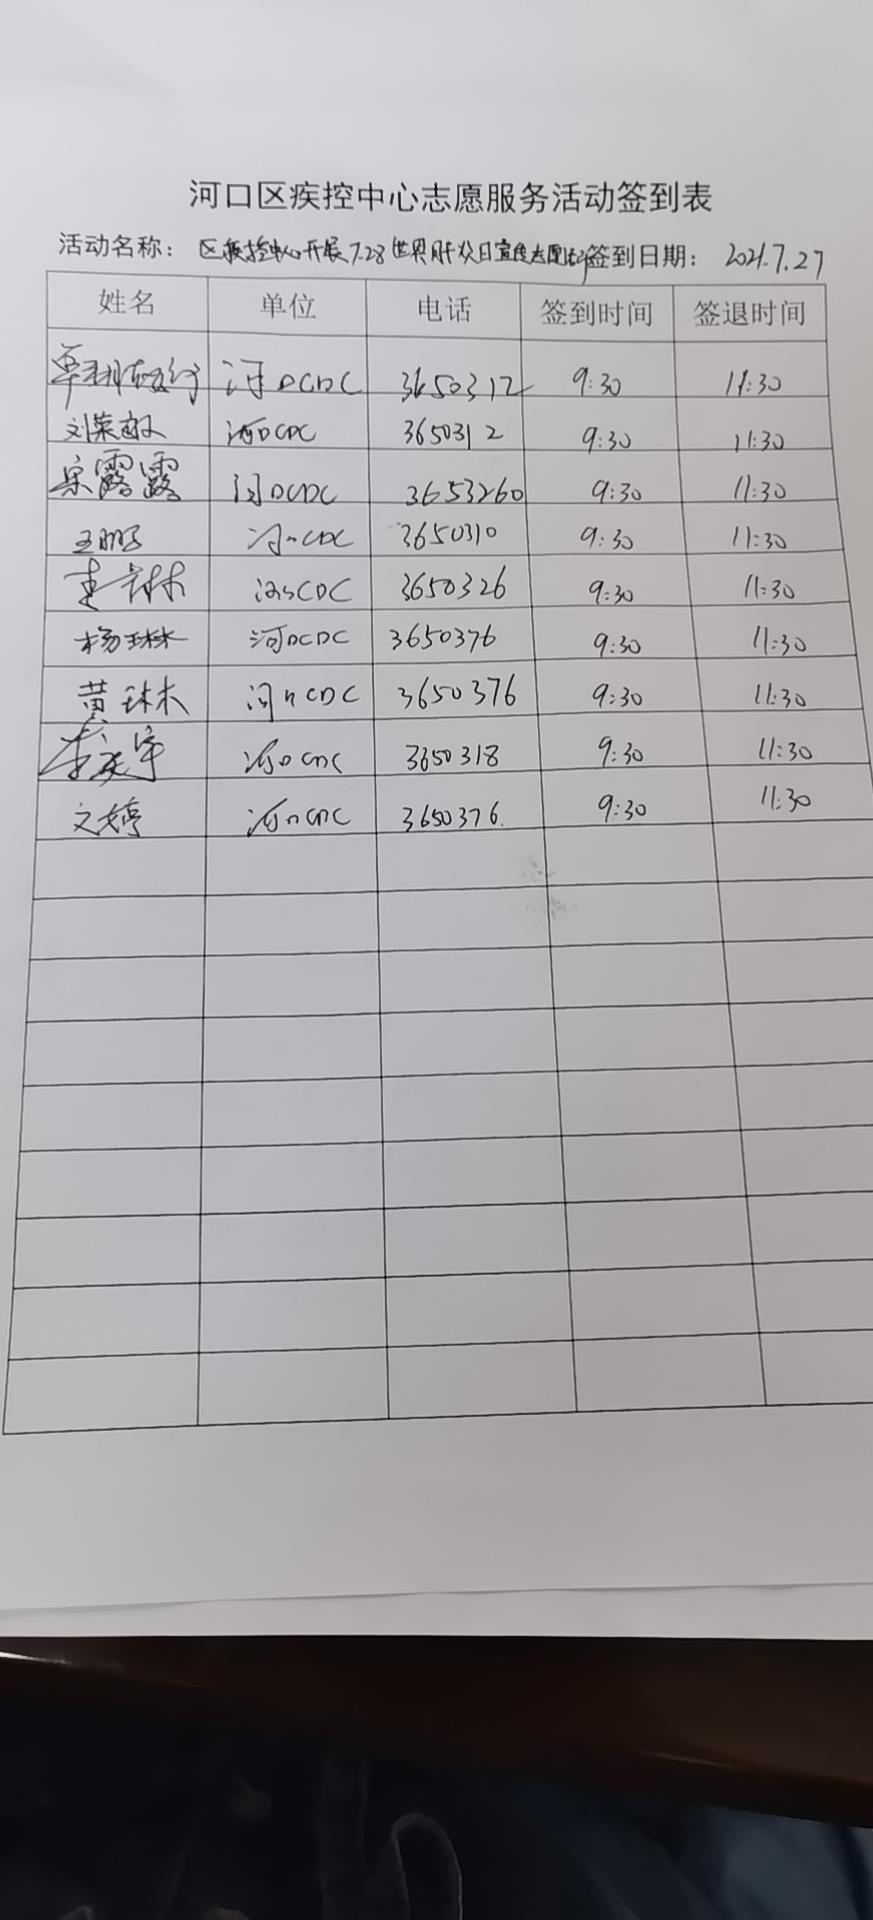 河口区疾控中心志愿服务活动签到表
活动名称： 区疾控中心开展7.28世界肝炎日宣传志愿活动 签到日期： 2021.7.27
姓名 单位 电话 签到时间 签退时间
河口CDC 3650312 9:30 11:30
刘荣敏 河口CDC 3650312 9:30 11:30
宋露露 河口CDC 3653260 9:30 11:30
王鹏 河口CDC 3650310 9:30 11:30
河口CDC 3650326 9:30 11:30
杨琳琳 河口CDC 3650376 9:30 11:30
黄琳 河口CDC 3650376 9:30 11:30
河口CDC 3650318 9:30 11:30
文婷 河口CDC 3650376. 9:30 11:30